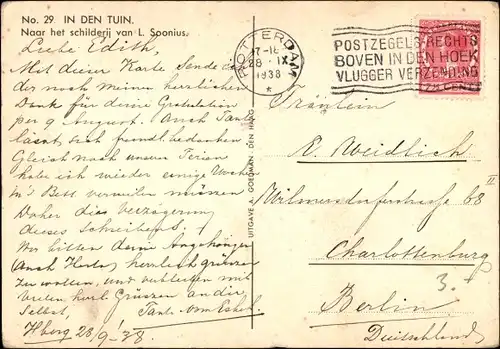 No. 29 IN DEN TUIN.
Naar het schilderij van L. Soonius.
Liebe Edith,
Mit dieser Karte Sende ich
dir noch meinen herzlichen
Dank für deine Gratulation
per 9 August. Auch Tante
lässt sich freundl. bedanken
Gleich nach unseren Ferien
habe ich wieder einige Wochen
in's Bett verweilen müssen
Daher die Verzögerung
dieses Schreibens!
Wir bitten deine Angehörigen
Auch Herta, herzlich grüssen
zu wollen, und verbleiben mit
vielen herzl. Grüssen an dir
Selbst,
Tante
Hberg 28/9-'38
UITGAVE A. GOEDMAN - DEN HAAG
ROTTERDAM
17-18
28 IX
1938
*
POSTZEGELS RECHTS
BOVEN IN DEN HOEK
VLUGGER VERZENDING
CENT
Fräulein
E. Weidlich
Wilmersdorferstrasse 68 II
Charlottenburg
3.
Berlin
Deutschland